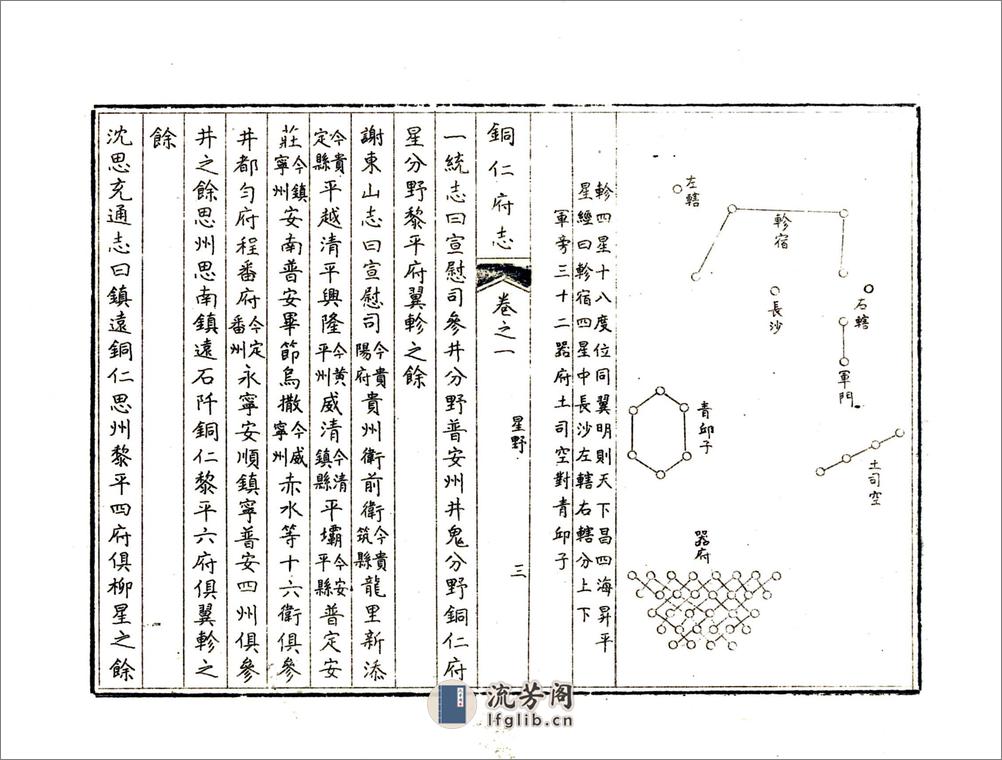 左轄
軫宿
右轄
長沙
軍門
青邱子
土司空
器府
軫四星十八度位同翼明則天下昌四海昇平
星經曰軫宿四星中長沙左轄右轄分上下
軍旁三十二器府土司空對青邱子
銅仁府志
卷之一
星野
三
一統志曰宣慰司參井分野普安州井鬼分野銅仁府
星分野黎平府翼軫之餘
謝東山志曰宣慰司今貴陽府貴州衛前衛今貴筑縣龍里新添
今貴定縣平越清平興隆今黃平州威清今清鎮縣平壩今安平縣普定安
莊今鎮寧州安南普安畢節烏撒今威寧州赤水等十六衛俱參
井都勻府程番府今定番州永寧安順鎮寧普安四州俱參
井之餘思州思南鎮遠石阡銅仁黎平六府俱翼軫之
餘
沈思充通志曰鎮遠銅仁思州黎平四府俱柳星之餘
流芳阁
lfglib.cn